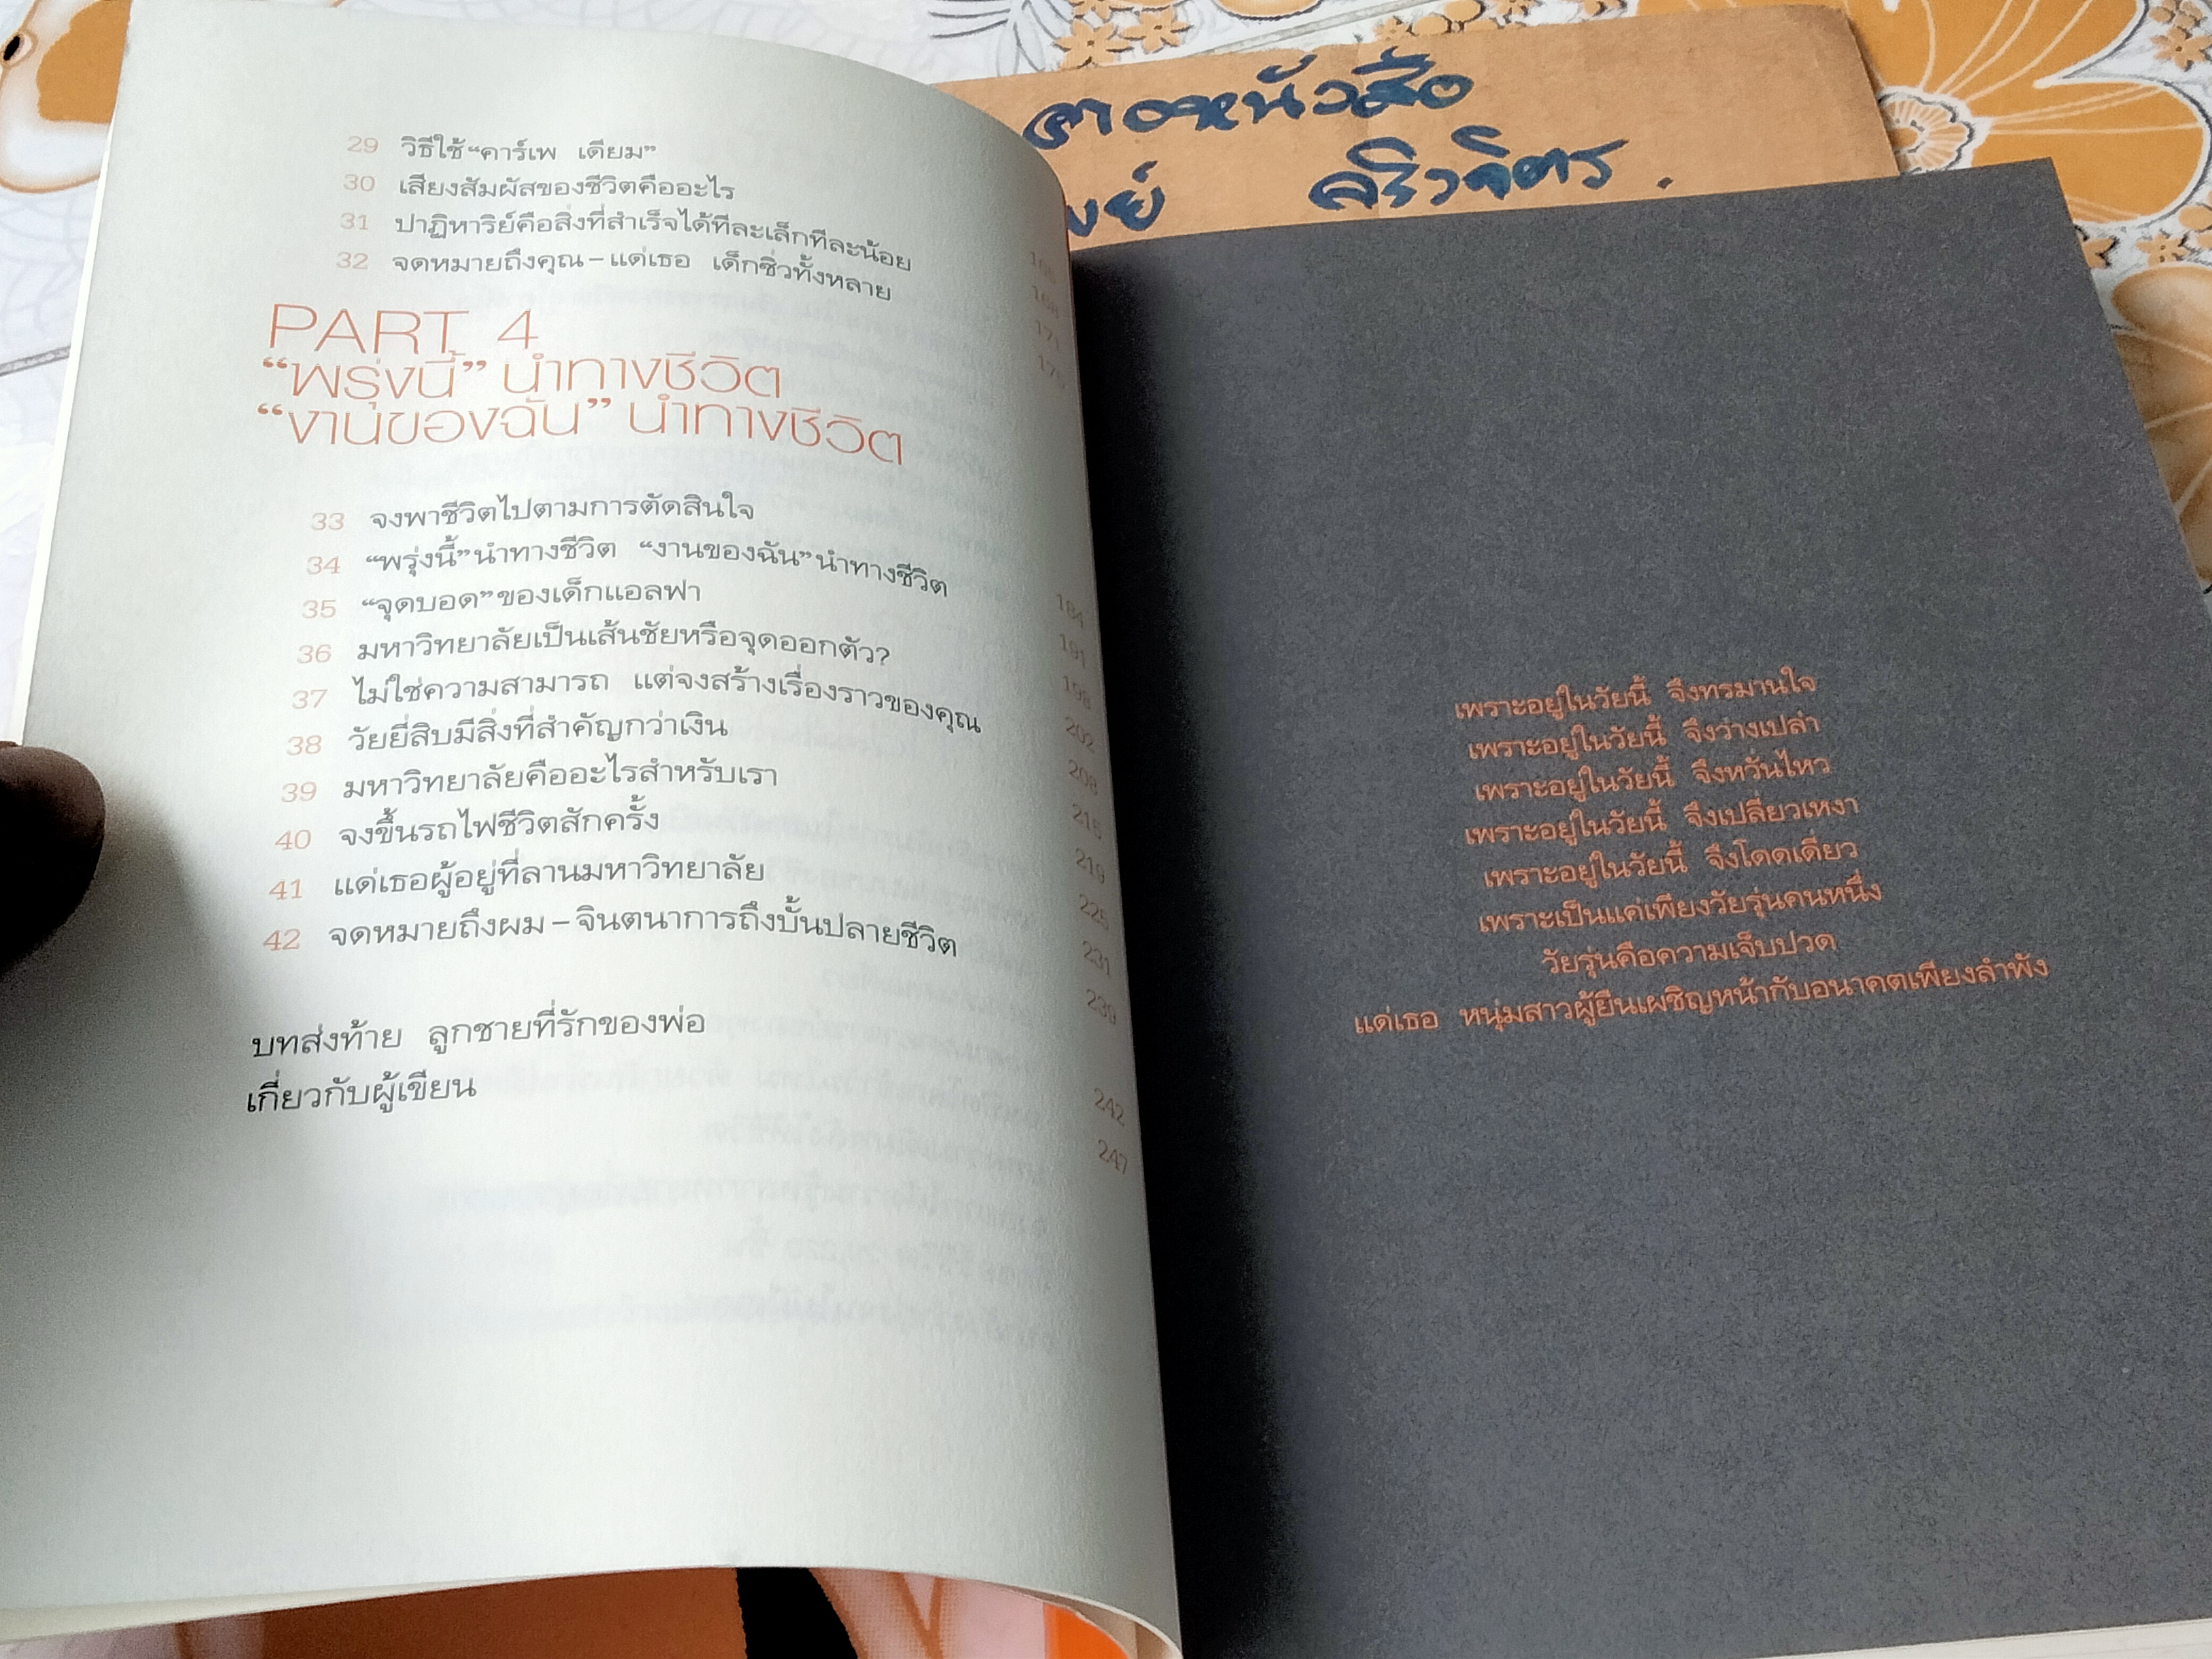 29 วิธีใช้ “คาร์เพ เดียม”
30 เสียงสัมผัสของชีวิตคืออะไร 168
31 ปาฏิหาริย์คือสิ่งที่สำเร็จได้ทีละเล็กทีละน้อย 171
32 จดหมายถึงคุณ – แด่เธอ เด็กซิ่วทั้งหลาย
PART 4
“พรุ่งนี้” นำทางชีวิต
“งานของฉัน” นำทางชีวิต
33 จงพาชีวิตไปตามการตัดสินใจ 184
34 “พรุ่งนี้” นำทางชีวิต “งานของฉัน” นำทางชีวิต 191
35 “จุดบอด” ของเด็กแอลฟา 198
36 มหาวิทยาลัยเป็นเส้นชัยหรือจุดออกตัว? 202
37 ไม่ใช่ความสามารถ แต่จงสร้างเรื่องราวของคุณ 209
38 วัยยี่สิบมีสิ่งที่สำคัญกว่าเงิน 215
39 มหาวิทยาลัยคืออะไรสำหรับเรา 219
40 จงขึ้นรถไฟชีวิตสักครั้ง 225
41 แด่เธอผู้อยู่ที่ลานมหาวิทยาลัย 231
42 จดหมายถึงผม – จินตนาการถึงบั้นปลายชีวิต 239
บทส่งท้าย ลูกชายที่รักของพ่อ 242
เกี่ยวกับผู้เขียน 247
เพราะอยู่ในวัยนี้ จึงทรมานใจ
เพราะอยู่ในวัยนี้ จึงว่างเปล่า
เพราะอยู่ในวัยนี้ จึงหวั่นไหว
เพราะอยู่ในวัยนี้ จึงเปลี่ยวเหงา
เพราะอยู่ในวัยนี้ จึงโดดเดี่ยว
เพราะเป็นแค่เพียงวัยรุ่นคนหนึ่ง
วัยรุ่นคือความเจ็บปวด
แด่เธอ หนุ่มสาวผู้ยืนเผชิญหน้ากับอนาคตเพียงลำพัง